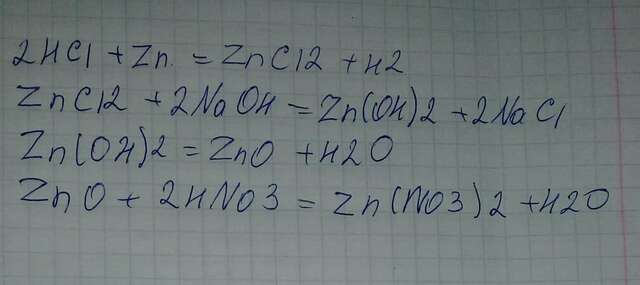 2HCl + Zn = ZnCl2 + H2
ZnCl2 + 2NaOH = Zn(OH)2 + 2NaCl
Zn(OH)2 = ZnO + H2O
ZnO + 2HNO3 = Zn(NO3)2 + H2O